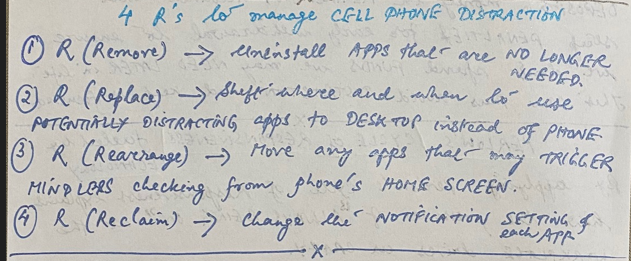 4 R's to manage CELL PHONE DISTRACTION
① R (Remove) → Uninstall APPS that are NO LONGER
NEEDED.
② R (Replace) → Shift where and when to use
POTENTIALLY DISTRACTING apps to DESKTOP instead of PHONE
③ R (Rearrange) → Move any apps that may TRIGGER
MINDLESS checking from phone's HOME SCREEN.
④ R (Reclaim) → Change the NOTIFICATION SETTING of
each APP
x